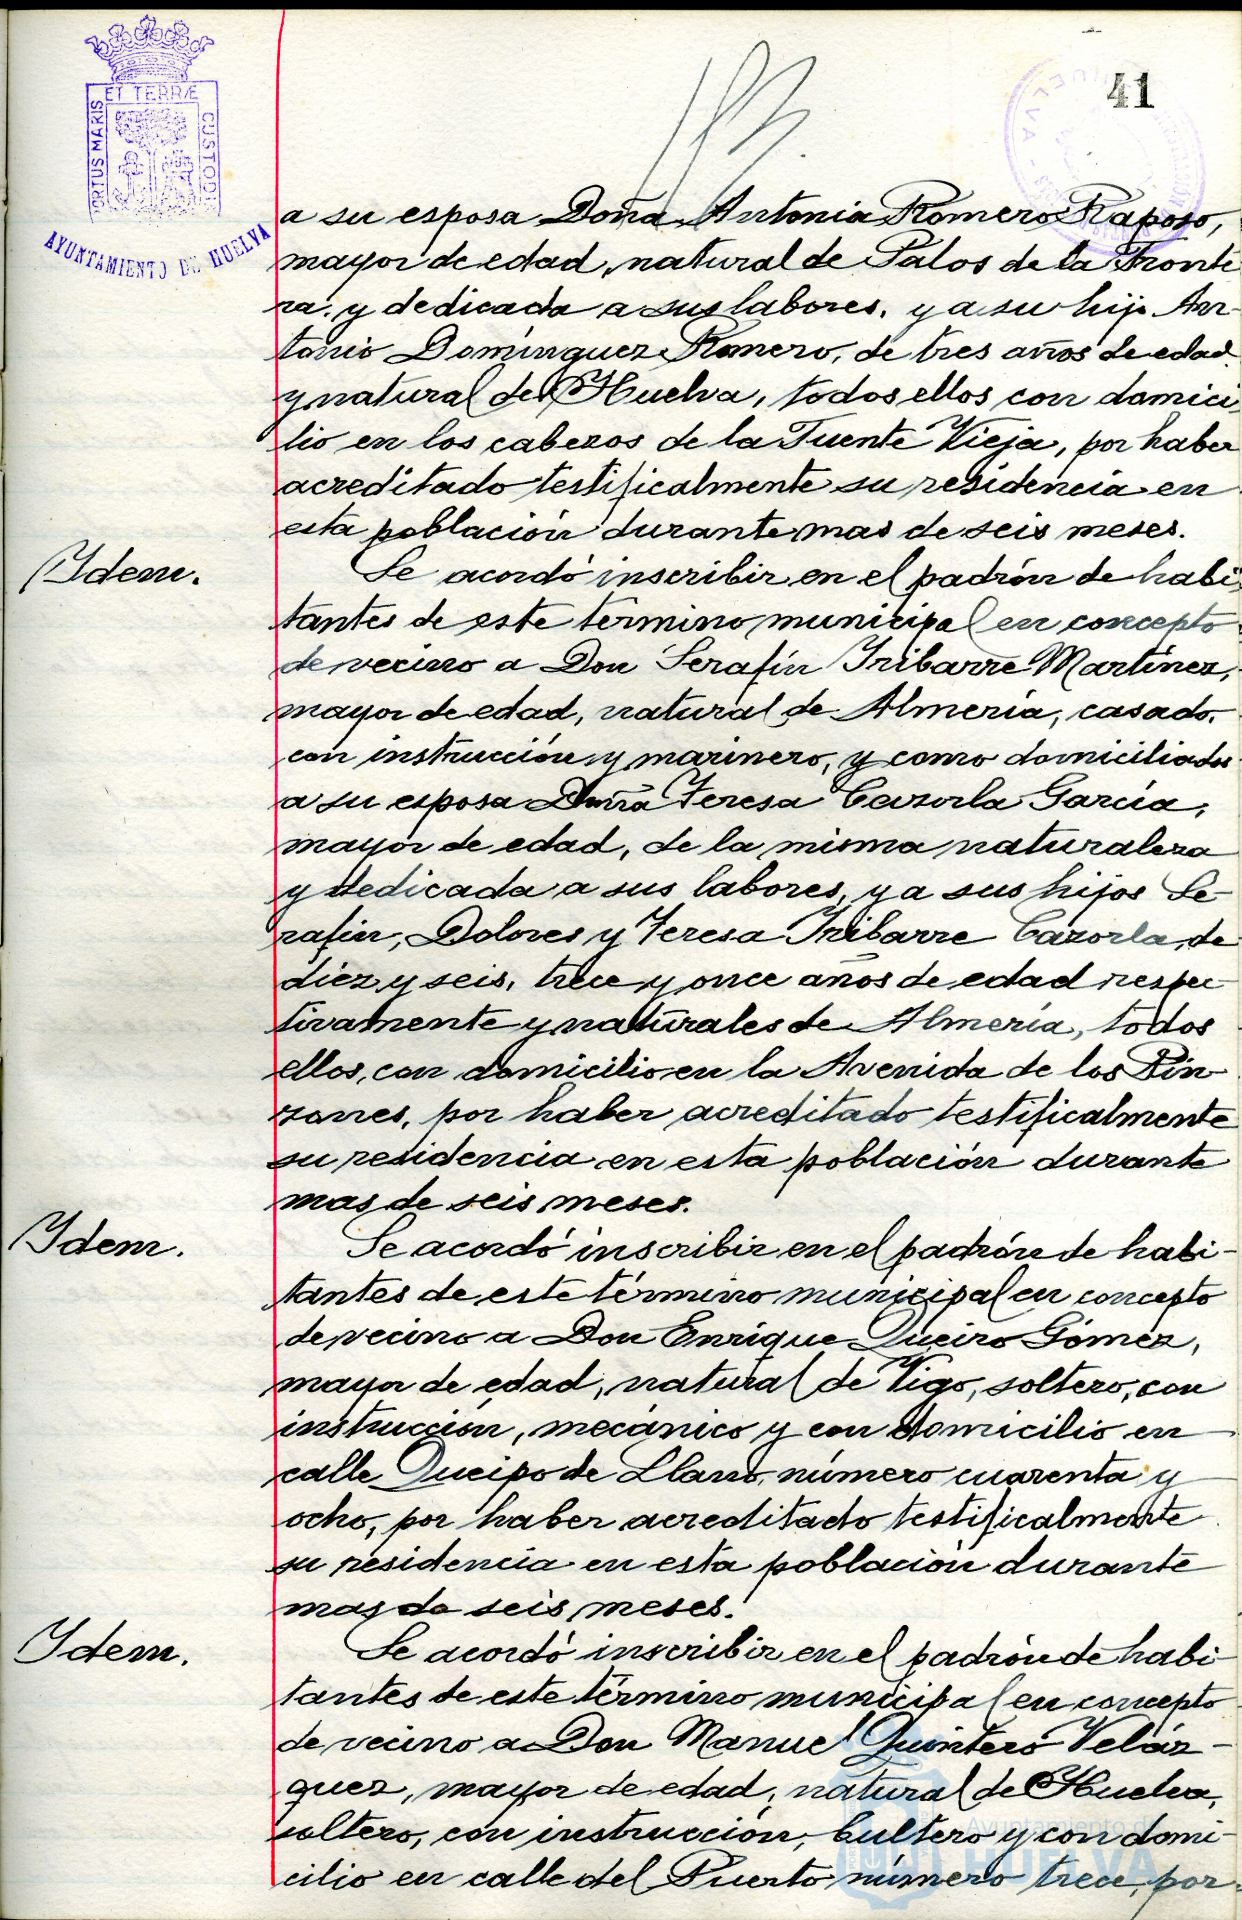 41
ET TERRÆ
PORTUS MARIS
CUSTODIA
AYUNTAMIENTO DE HUELVA
a su esposa Doña Antonia Romero Raposo,
mayor de edad, natural de Palos de la Fronte
ra, y dedicada a sus labores, y a su hijo An-
tonio Domínguez Romero, de tres años de edad
y natural de Huelva, todos ellos con domici-
lio en los cabezos de la Fuente Vieja, por haber
acreditado testificalmente su residencia en
esta población durante mas de seis meses.
Idem.
Se acordó inscribir en el padrón de habi-
tantes de este término municipal en concepto
de vecino a Don Serafín Iribarre Martínez,
mayor de edad, natural de Almería, casado,
con instrucción y marinero, y como domiciliados
a su esposa Doña Teresa Cazorla García,
mayor de edad, de la misma naturaleza
y dedicada a sus labores, y a sus hijos Se-
rafín, Dolores y Teresa Iribarre Cazorla, de
diez y seis, trece y once años de edad respec-
tivamente y naturales de Almería, todos
ellos, con domicilio en la Avenida de los Pin-
zones, por haber acreditado testificalmente
su residencia en esta población durante
mas de seis meses.
Idem.
Se acordó inscribir en el padrón de habi-
tantes de este término municipal en concepto
de vecino a Don Enrique Queiro Gómez,
mayor de edad, natural de Vigo, soltero, con
instrucción, mecánico y con domicilio en
calle Queipo de Llano, número cuarenta y
ocho, por haber acreditado testificalmente
su residencia en esta población durante
mas de seis meses.
Idem.
Se acordó inscribir en el padrón de habi-
tantes de este término municipal en concepto
de vecino a Don Manuel Quintero Veláz-
quez, mayor de edad, natural de Huelva,
soltero, con instrucción, bultero y con domi-
cilio en calle del Puerto número trece, por
Ayuntamiento de
HUELVA